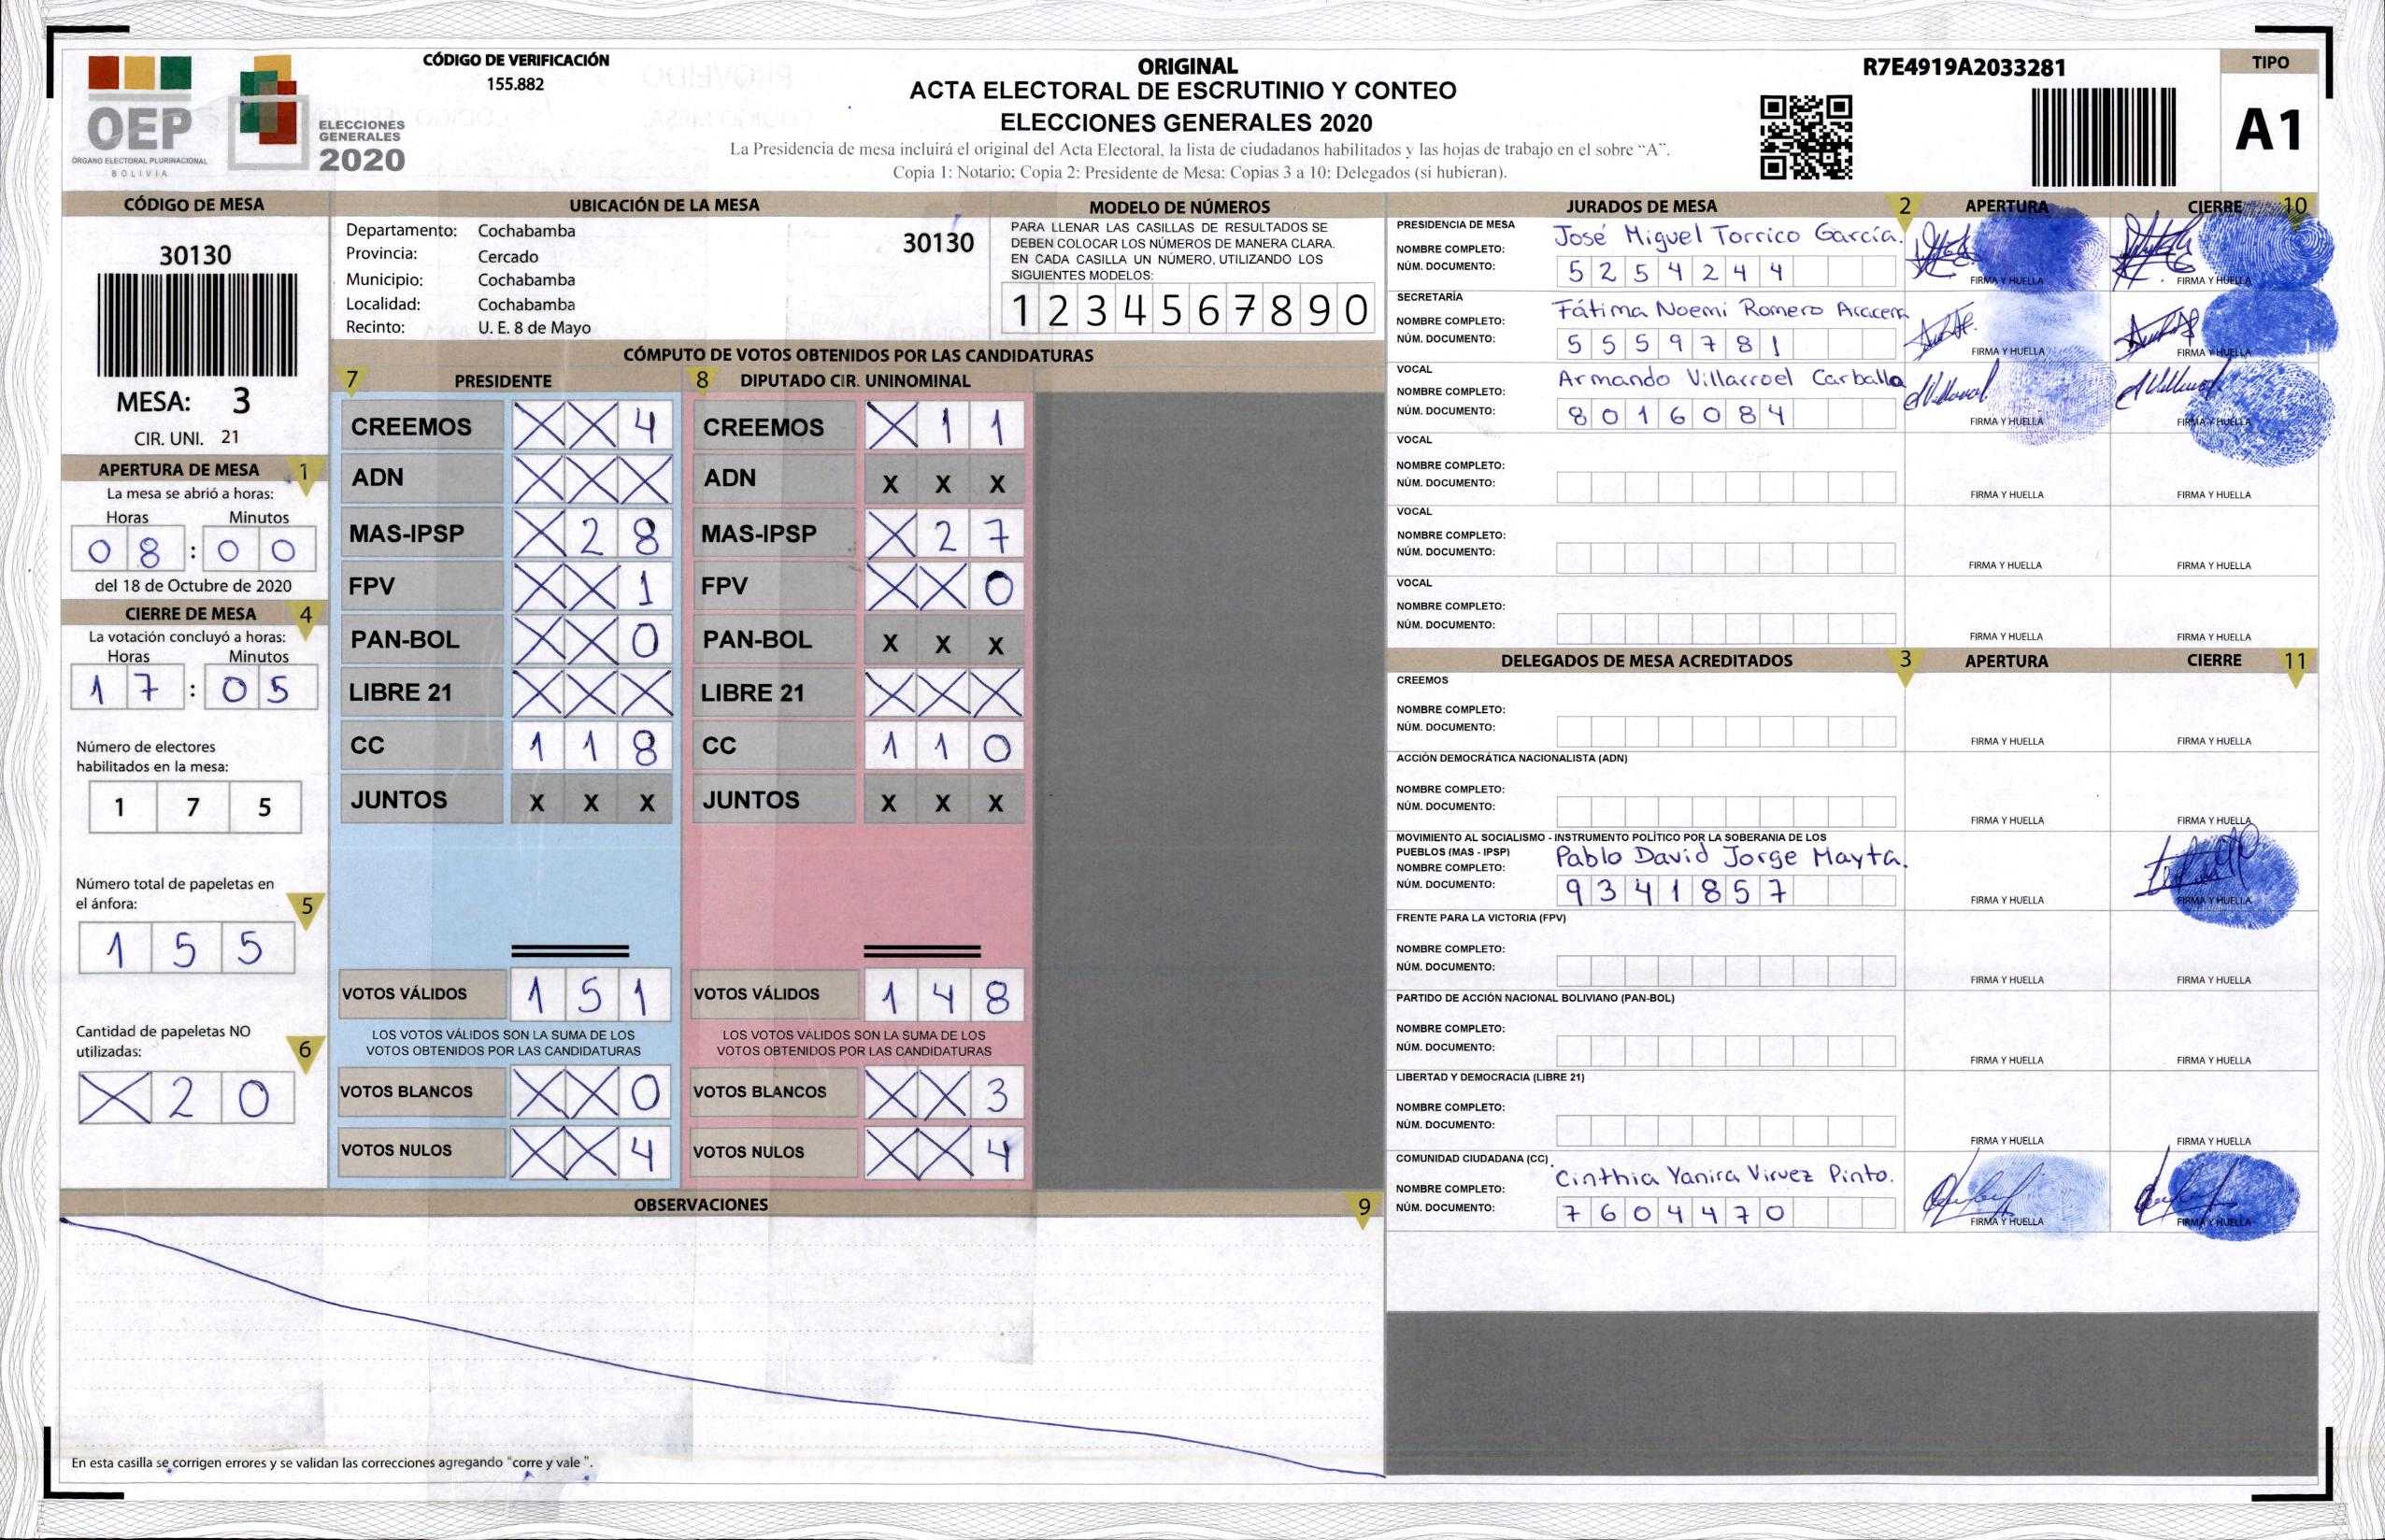 OEP
ÓRGANO ELECTORAL PLURINACIONAL
BOLIVIA
ELECCIONES
GENERALES
2020
CÓDIGO DE VERIFICACIÓN
155.882
ORIGINAL
ACTA ELECTORAL DE ESCRUTINIO Y CONTEO
ELECCIONES GENERALES 2020
La Presidencia de mesa incluirá el original del Acta Electoral, la lista de ciudadanos habilitados y las hojas de trabajo en el sobre “A”.
Copia 1: Notario; Copia 2: Presidente de Mesa; Copias 3 a 10: Delegados (si hubieran).
R7E4919A2033281
TIPO
A1
CÓDIGO DE MESA
30130
MESA: 3
CIR. UNI. 21
APERTURA DE MESA 1
La mesa se abrió a horas:
Horas Minutos
0 8 : 0 0
del 18 de Octubre de 2020
CIERRE DE MESA 4
La votación concluyó a horas:
Horas Minutos
1 7 : 0 5
Número de electores
habilitados en la mesa:
1 7 5
Número total de papeletas en
el ánfora: 5
1 5 5
Cantidad de papeletas NO
utilizadas: 6
X 2 0
UBICACIÓN DE LA MESA
Departamento: Cochabamba
Provincia: Cercado
Municipio: Cochabamba
Localidad: Cochabamba
Recinto: U. E. 8 de Mayo
30130
MODELO DE NÚMEROS
PARA LLENAR LAS CASILLAS DE RESULTADOS SE
DEBEN COLOCAR LOS NÚMEROS DE MANERA CLARA.
EN CADA CASILLA UN NÚMERO, UTILIZANDO LOS
SIGUIENTES MODELOS:
1 2 3 4 5 6 7 8 9 0
CÓMPUTO DE VOTOS OBTENIDOS POR LAS CANDIDATURAS
7 PRESIDENTE
CREEMOS X X 4
ADN X X X
MAS-IPSP X 2 8
FPV X X 1
PAN-BOL X X 0
LIBRE 21 X X X
CC 1 1 8
JUNTOS X X X
VOTOS VÁLIDOS 1 5 1
LOS VOTOS VÁLIDOS SON LA SUMA DE LOS
VOTOS OBTENIDOS POR LAS CANDIDATURAS
VOTOS BLANCOS X X 0
VOTOS NULOS X X 4
8 DIPUTADO CIR. UNINOMINAL
CREEMOS X 1 1
ADN X X X
MAS-IPSP X 2 7
FPV X X 0
PAN-BOL X X X
LIBRE 21 X X X
CC 1 1 0
JUNTOS X X X
VOTOS VÁLIDOS 1 4 8
LOS VOTOS VÁLIDOS SON LA SUMA DE LOS
VOTOS OBTENIDOS POR LAS CANDIDATURAS
VOTOS BLANCOS X X 3
VOTOS NULOS X X 4
OBSERVACIONES 9
En esta casilla se corrigen errores y se validan las correcciones agregando "corre y vale ".
JURADOS DE MESA 2 APERTURA CIERRE 10
PRESIDENCIA DE MESA
NOMBRE COMPLETO: José Miguel Torrico García.
NÚM. DOCUMENTO: 5 2 5 4 2 4 4
FIRMA Y HUELLA FIRMA Y HUELLA
SECRETARÍA
NOMBRE COMPLETO: Fátima Noemi Romero
NÚM. DOCUMENTO: 5 5 5 9 7 8 1
FIRMA Y HUELLA FIRMA Y HUELLA
VOCAL
NOMBRE COMPLETO: Armando Villarroel Carballo
NÚM. DOCUMENTO: 8 0 1 6 0 8 4
FIRMA Y HUELLA FIRMA Y HUELLA
VOCAL
NOMBRE COMPLETO:
NÚM. DOCUMENTO:
FIRMA Y HUELLA FIRMA Y HUELLA
VOCAL
NOMBRE COMPLETO:
NÚM. DOCUMENTO:
FIRMA Y HUELLA FIRMA Y HUELLA
VOCAL
NOMBRE COMPLETO:
NÚM. DOCUMENTO:
FIRMA Y HUELLA FIRMA Y HUELLA
DELEGADOS DE MESA ACREDITADOS 3 APERTURA CIERRE 11
CREEMOS
NOMBRE COMPLETO:
NÚM. DOCUMENTO:
FIRMA Y HUELLA FIRMA Y HUELLA
ACCIÓN DEMOCRÁTICA NACIONALISTA (ADN)
NOMBRE COMPLETO:
NÚM. DOCUMENTO:
FIRMA Y HUELLA FIRMA Y HUELLA
MOVIMIENTO AL SOCIALISMO - INSTRUMENTO POLÍTICO POR LA SOBERANIA DE LOS
PUEBLOS (MAS - IPSP)
NOMBRE COMPLETO: Pablo David Jorge Mayta.
NÚM. DOCUMENTO: 9 3 4 1 8 5 7
FIRMA Y HUELLA FIRMA Y HUELLA
FRENTE PARA LA VICTORIA (FPV)
NOMBRE COMPLETO:
NÚM. DOCUMENTO:
FIRMA Y HUELLA FIRMA Y HUELLA
PARTIDO DE ACCIÓN NACIONAL BOLIVIANO (PAN-BOL)
NOMBRE COMPLETO:
NÚM. DOCUMENTO:
FIRMA Y HUELLA FIRMA Y HUELLA
LIBERTAD Y DEMOCRACIA (LIBRE 21)
NOMBRE COMPLETO:
NÚM. DOCUMENTO:
FIRMA Y HUELLA FIRMA Y HUELLA
COMUNIDAD CIUDADANA (CC)
NOMBRE COMPLETO: Cinthia Yanira Virvez Pinto.
NÚM. DOCUMENTO: 7 6 0 4 4 7 0
FIRMA Y HUELLA FIRMA Y HUELLA